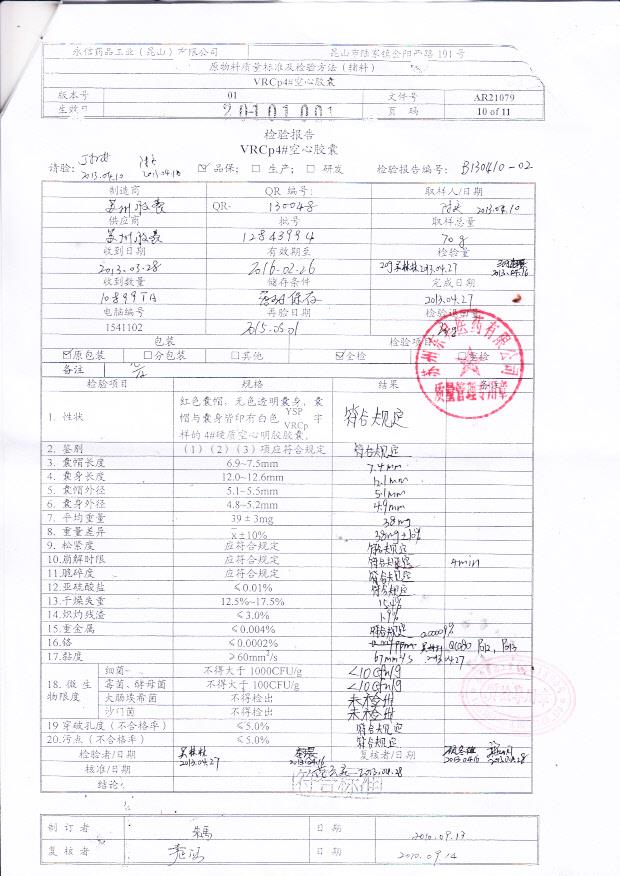 永信药品工业（昆山）有限公司 昆山市陆家镇金阳西路 191 号
原物料质量标准及检验方法（辅料）
VRCp4#空心胶囊
版本号 01 文件号 AR21079
生效日 20101001 页 码 10 of 11
检验报告
VRCp4#空心胶囊
请验: 2013.04.10 2013.04.18 ☑ 品保; □ 生产; □ 研发 检验报告编号: B130410-02
制造商 QR 编号: 取样人/日期
苏州 QR- 130048 2013.04.10
供应商 批号 取样总量
苏州 12843994 70g
收到日期 有效期至 检验量
2013.03.28 2016.02.26 2013.04.27 2013.04.16
收到数量 储存条件 完成日期
10899TA 密闭保存 2013.04.27
电脑编号 再验日期
1541102 2015.05.01
包装 检验项目
☑原包装 □分包装 □其他 ☑全检
备注
检验项目 规格 结果
1. 性状 红色囊帽，无色透明囊身，囊帽与囊身皆印有白色 YSP VRCp 字样的 4#硬质空心明胶胶囊。 符合规定
2. 鉴别 (1)(2)(3)项应符合规定 符合规定
3. 囊帽长度 6.9~7.5mm 7.4mm
4. 囊身长度 12.0~12.6mm 12.1mm
5. 囊帽外径 5.1~5.5mm 5.1mm
6. 囊身外径 4.8~5.2mm 4.9mm
7. 平均重量 39±3mg 38mg
8. 重量差异 x±10% 38mg±10%
9. 松紧度 应符合规定 符合规定
10.崩解时限 应符合规定 符合规定 4min
11.脆碎度 应符合规定 符合规定
12.亚硫酸盐 ≤0.01% 符合规定
13.干燥失重 12.5%~17.5% 15.4%
14.炽灼残渣 ≤3.0% 1.9%
15.重金属 ≤0.004% 符合规定
16.铬 ≤0.0002%
17.黏度 ≥60mm²/s 67mm²/s 2013.04.27
18.微生物限度 细菌 不得大于 1000CFU/g <10cfu/g
霉菌、酵母菌 不得大于 100CFU/g <10cfu/g
大肠埃希菌 不得检出 未检出
沙门菌 不得检出 未检出
19 穿破孔度（不合格率） ≤5.0% 符合规定
20.污点（不合格率） ≤5.0% 符合规定
检验者/日期 2013.04.27 2013.04.16 复核者/日期 2013.04.16 2013.04.28
核准/日期 2013.04.28
结论: 符合标准
制 订 者 日 期 2010.09.13
复 核 者 日 期 2010.09.14
苏州 医药有限公司
质量管理专用章